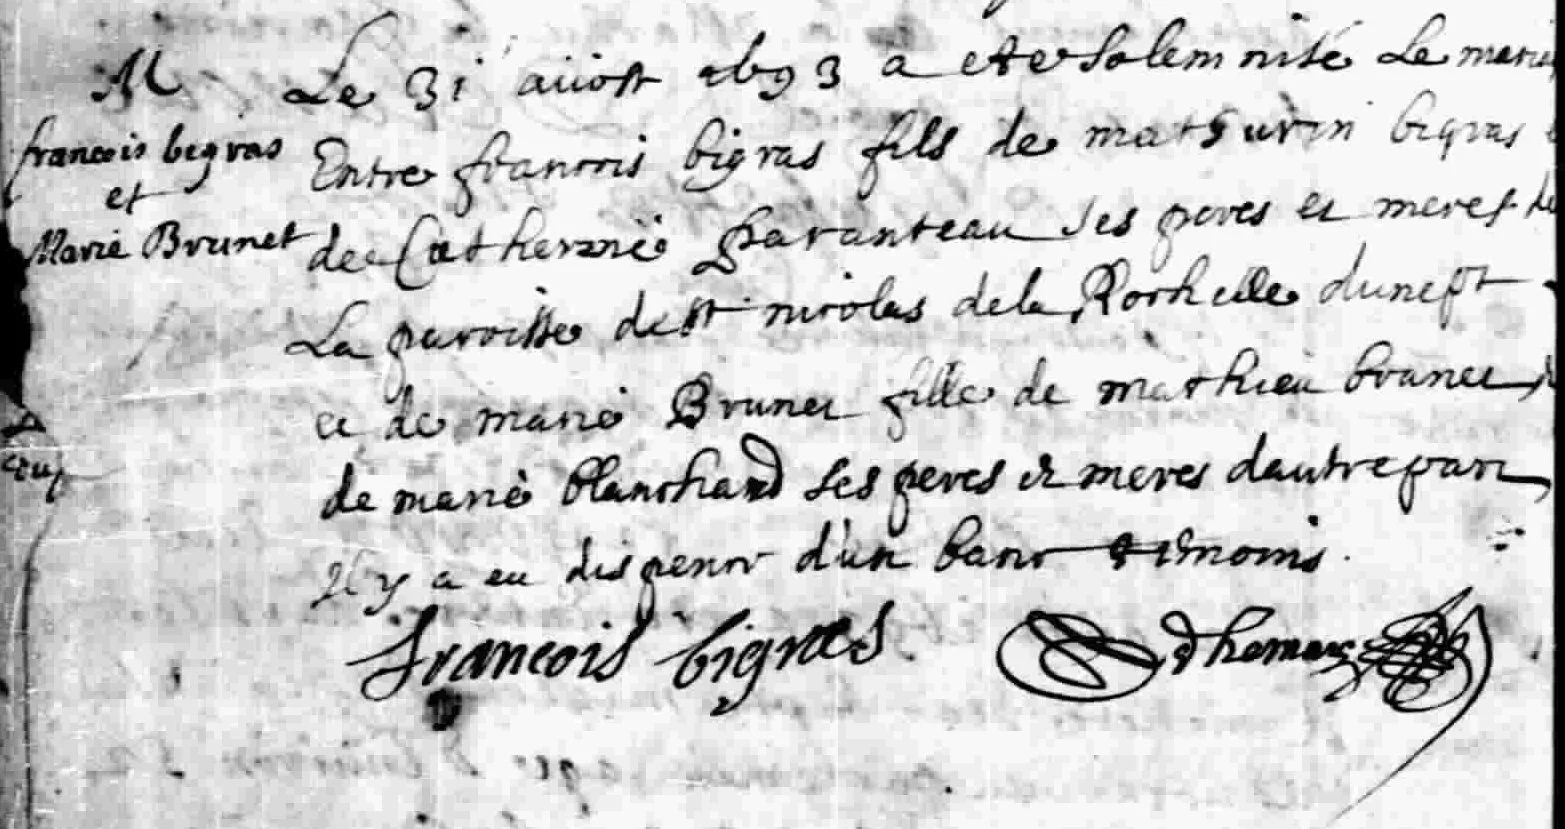 M
francois bigras
et
Marie Brunet
Le 31 auost 1693 a ete solemnisé Le maria
Entre francois bigras fils de mathurin bigras e
de Catherine paranteau ses peres et meres de
La paroisse de st nicolas de la Rochelle dune pt
et de marie Brunet fille de mathieu brunet
de marie blanchard ses peres et meres dautre part
Il y a eu dispence d'un banc
francois bigras